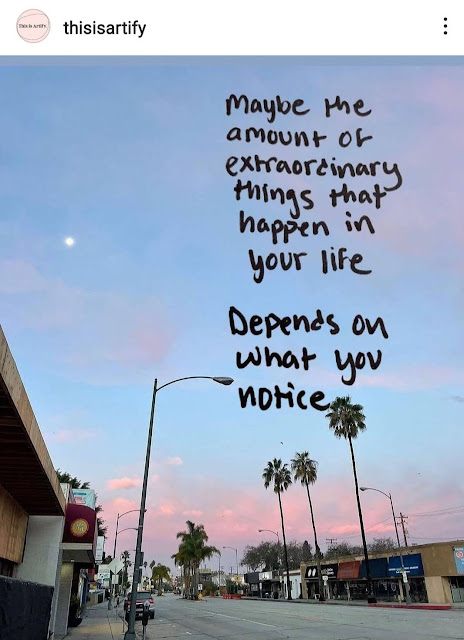 This is Artify.
thisisartify
Maybe the
amount of
extraordinary
things that
happen in
your life
Depends on
what you
notice